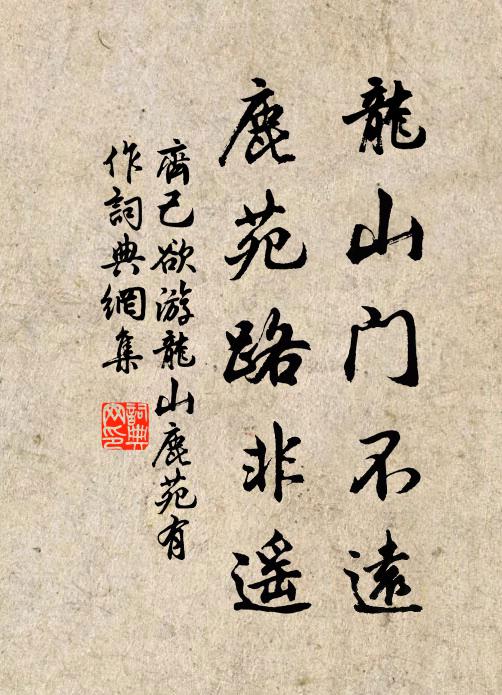 龍山門不遠
鹿苑路非遥
齊己欲游龍山鹿苑有
作詞典網集
詞典
网印